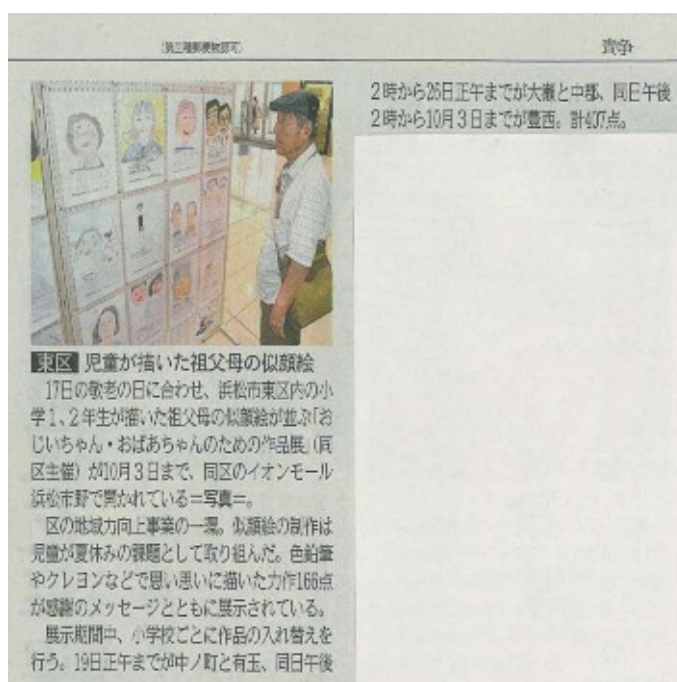 (第三種郵便物認可)
東区 児童が描いた祖父母の似顔絵
17日の敬老の日に合わせ、浜松市東区内の小
学1、2年生が描いた祖父母の似顔絵が並ぶ「お
じいちゃん・おばあちゃんのための作品展」(同
区主催)が10月3日まで、同区のイオンモール
浜松市野で開かれている=写真=。
区の地域力向上事業の一環。似顔絵の制作は
児童が夏休みの課題として取り組んだ。色鉛筆
やクレヨンなどで思い思いに描いた力作166点
が感謝のメッセージとともに展示されている。
展示期間中、小学校ごとに作品の入れ替えを
行う。19日正午までが中ノ町と有玉、同日午後
2時から26日正午までが大瀬と中郡、同日午後
2時から10月3日までが豊西。計407点。